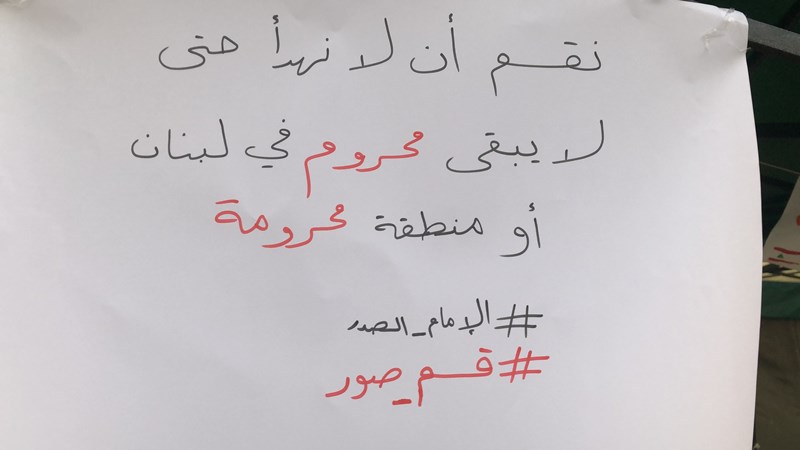 نقسم أن لا نهدأ حتى
لا يبقى محروم في لبنان
أو منطقة محرومة
#الإمام_الصدر
#قسم_صور